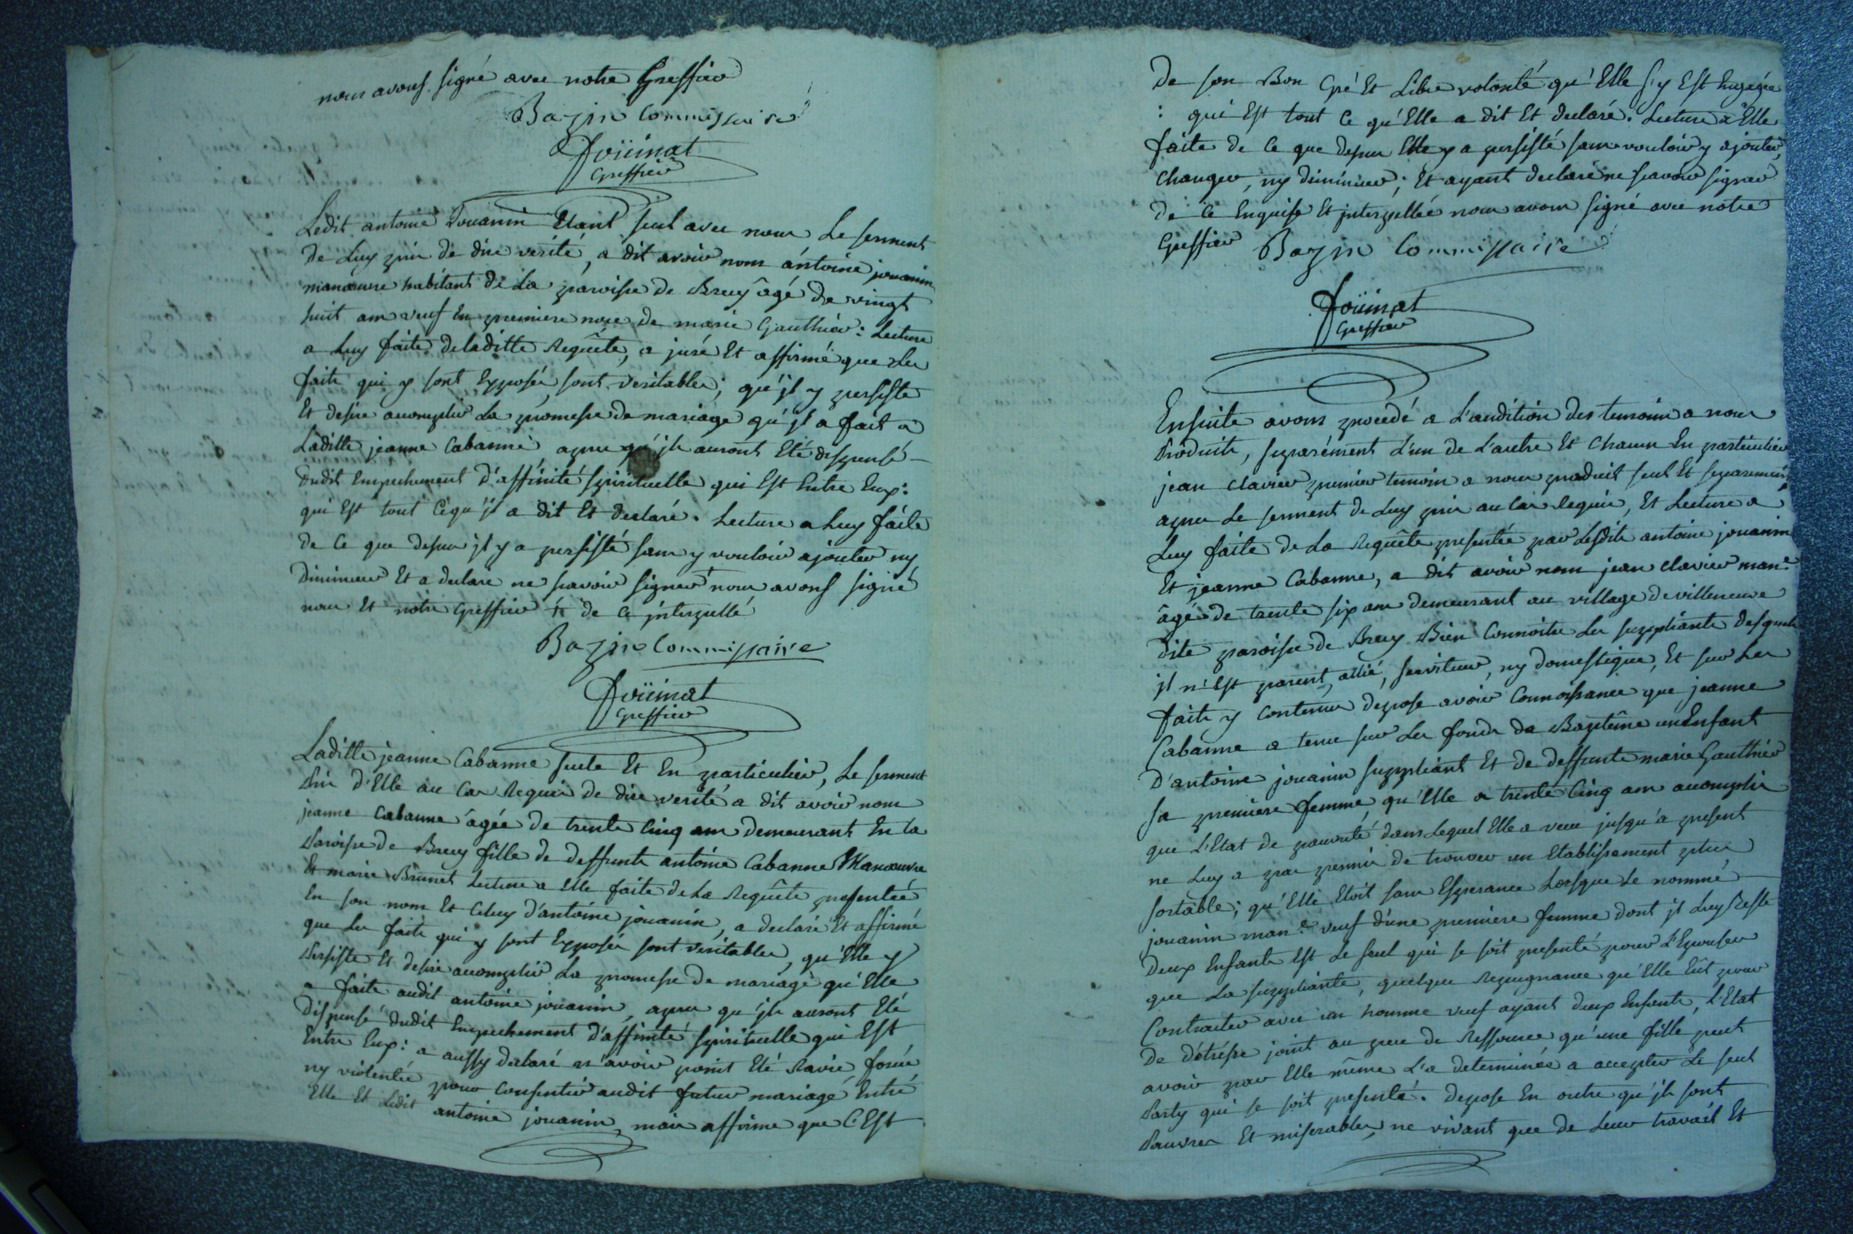 nous avons signé avec notre Greffier
Bazin Commissaire
foüinat
Greffier
Ledit antoine Jouanin Etant seul avec nous Le serment
de Luy pris de dire verité, a dit avoir nom antoine jouanin
manœuvre habitant de La paroisse de Brecy âgé de vingt
huit ans veuf En premiere noce de marie Gauthier: Lecture
a Luy faite deladitte Requête, a juré Et affirmé que Les
faits qui y sont Exposés sont veritables; qu'jl y persiste
Et desire accomplir La promesse de mariage qu'jl a fait a
Laditte jeanne Cabanne apres qu'jls auront Eté dispensé
dudit Empechement d'affinité spirituelle qui Est Entre Eux:
qui Est tout Cequ'jl a dit Et declaré. Lecture a Luy faite
de Ce que dessus jl y a persisté sans y vouloir ajouter ny
diminuer Et a declaré ne scavoir signer nous avons signé
nous Et notre Greffier de Ce jnterpellé
Bazin Commissaire
foüinat
Greffier
Laditte jeanne Cabanne seule Et En particulier, Le serment
Pris d'Elle au Cas Requis de dire verité a dit avoir nom
jeanne Cabanne âgée de trente Cinq ans demeurant En La
Paroisse de Brecy fille de deffunts antoine Cabanne Manœuvre
Et marie Brunet Lecture a Elle faite de La Requête presentée
En son nom Et Celuy d'antoine jouanin, a declaré Et affirmé
que Les faits qui y sont Exposés sont veritables, qu'Elle y
Persiste Et desire accomplir La promesse de mariage qu'Elle
a faite audit antoine jouanin, apres qu'jls auront Eté
dispensé dudit Empechement d'affinité spirituelle qui Est
Entre Eux: a aussy declaré n'avoir point Eté Ravie forcée
ny violentée pour Consentir audit futur mariage Entre
Elle Et Ledit antoine jouanin, mais affirme que C'Est
De son Bon Gré Et Libre volonté qu'Elle s'y Est Engagée
: qui Est tout Ce qu'Elle a dit Et declaré. Lecture a Elle
faite de Ce que dessus Elle y a persisté sans vouloir y ajouter,
changer, ny diminuer; Et ayant declaré ne scavoir signer
de Ce Enquise Et jnterpellée nous avons signé avec notre
Greffier Bazin Commissaire
foüinat
Greffier
Ensuite avons procedé a L'audition des temoins a nous
Produits, separément L'un de L'autre Et chacun En particulier
jean clavier premier temoin a nous produit seul Et separement
apres Le serment de Luy pris au Cas Requis, Et Lecture a
Luy faite de La Requête presentée par Lesdits antoine jouanin
Et jeanne Cabanne, a dit avoir nom jean clavier man.e
âgé de trente six ans demeurant au village de villeneuve
dite paroisse de Brecy Bien Connoitre Les suppliants desquels
jl n'Est parent, allié, serviteur, ny domestique, Et sur Les
faits y Contenus depose avoir Connoissance que jeanne
Cabanne a tenu sur Les fonds de Baptême un Enfant
D'antoine jouanin suppliant Et de deffunte marie Gauthier
sa premiere femme, qu'Elle a trente Cinq ans accomplis
que L'Etat de pauvreté dans Lequel Elle a vecu jusqu'a present
ne Luy a pas permis de trouver un Etablissement plus
sortable; qu'Elle Etoit sans Esperance Lorsque Le nommé
jouanin man.e veuf d'une premiere femme dont jl Luy Reste
Deux Enfants Est Le seul qui se soit presenté pour L'Epouser
que La suppliante, quelque Repugnance qu'Elle Eût pour
Contracter avec un homme veuf ayant deux Enfants, L'Etat
De détresse joint au peu de Ressource qu'une fille peut
avoir par Elle même L'a determinée a accepter Le seul
Party qui se soit presenté. Depose En outre qu'jls sont
Pauvres Et miserables, ne vivant que de Leur travail Et